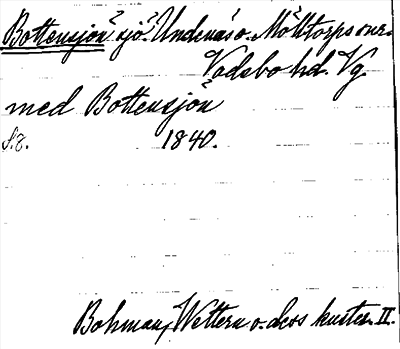 Bottensjön sjö. Undenäs o. Mölltorps snr.
Vadsbo hd. Vg.
med Bottensjön
S. 7. 1840.
Bohman, Wettern o. dess kuster. II.